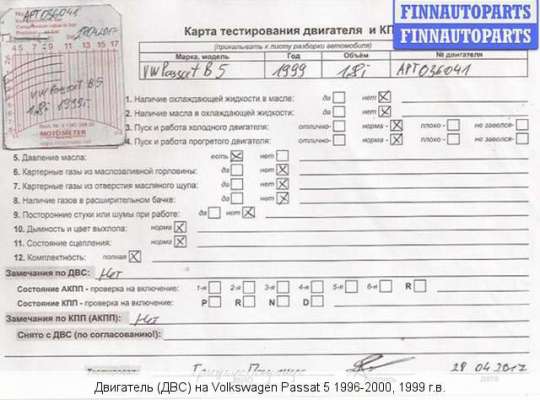 FINNAUTOPARTS
FINNAUTOPARTS
APT036041
VW Passat B5
1.8i 1999г.
MOTOMETER
Карта тестирования двигателя и КП
(прикалывать к листу разборки автомобиля)
Марка, модель Год Объём № двигателя
VW Passat B5 1999 1.8i APT036041
1. Наличие охлаждающей жидкости в масле: да нет
2. Наличие масла в охлаждающей жидкости: да нет
3. Пуск и работа холодного двигателя: отлично- норма - плохо - не завелся-
4. Пуск и работа прогретого двигателя: отлично- норма - плохо - не завелся-
5. Давление масла: есть нет
6. Картерные газы из маслозаливной горловины: да нет
7. Картерные газы из отверстия масляного щупа: да нет
8. Наличие газов в расширительном бачке: да нет
9. Посторонние стуки или шумы при работе: да нет
10. Дымность и цвет выхлопа: норма
11. Состояние сцепления: норма
12. Комплектность: полная
Замечания по ДВС: Нет
Состояние АКПП - проверка на включение: 1-я 2-я 3-я 4-я 5-я 6-я R
Состояние КПП - проверка на включение: P R N D
Замечания по КПП (АКПП): Нет
Снято с ДВС (по согласованию!):
28 04.2017
Двигатель (ДВС) на Volkswagen Passat 5 1996-2000, 1999 г.в.